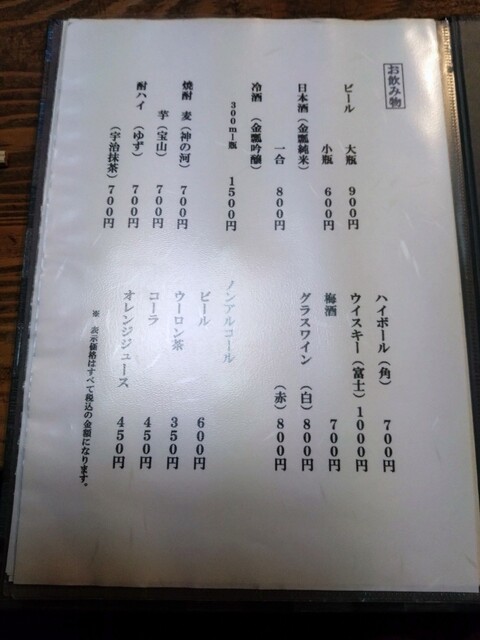 お飲み物
ビール 大瓶 900円
小瓶 600円
日本酒(金瓢純米)
一合 800円
冷酒(金瓢吟醸)
300ml瓶 1500円
焼酎 麦(神の河) 700円
芋(宝山) 700円
酎ハイ(ゆず) 700円
(宇治抹茶)700円
ハイボール(角) 700円
ウイスキー(富士)1000円
梅酒 700円
グラスワイン (白)800円
(赤)800円
ノンアルコール
ビール 600円
ウーロン茶 350円
コーラ 450円
オレンジジュース 450円
※ 表示価格はすべて税込の金額になります。